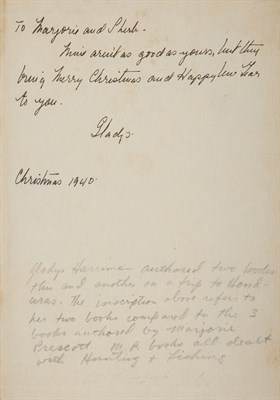 To Marjorie and Sherb-
Mine aren't as good as yours, but they
bring Merry Christmas and Happy New Year
to you.
Gladys.
Christmas 1940.
Gladys Harriman authored two books
this and another on a trip to Hond-
uras. The inscription above refers to
her two books compared to the 3
books authored by Marjorie
Prescott. M P books all dealt
with Hunting & Fishing